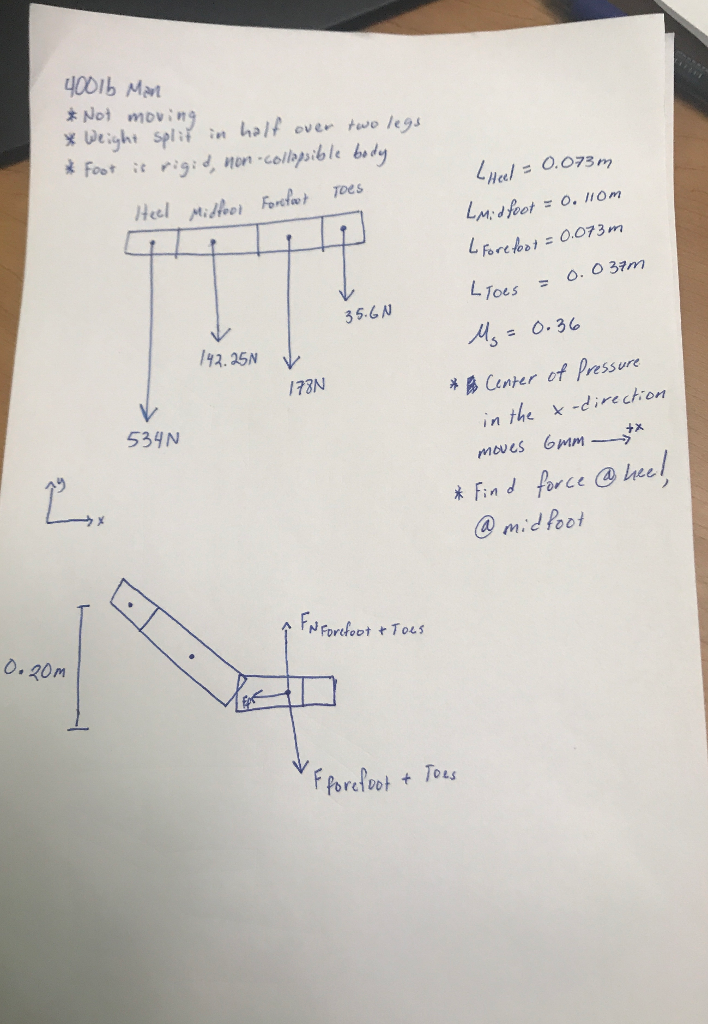 400lb Man
* Not moving
* Weight split in half over two legs
* Foot is rigid, non-collapsible body
Heel Midfoot Forefoot Toes
534N
142.25N
178N
35.6N
L Heel = 0.073m
L Midfoot = 0.110m
L Forefoot = 0.073m
L Toes = 0.037m
Ms = 0.36
* Center of Pressure
in the x-direction
moves 6mm → +x
* Find force @ heel,
@ midfoot
y
x
0.20m
F N Forefoot + Toes
F Forefoot + Toes